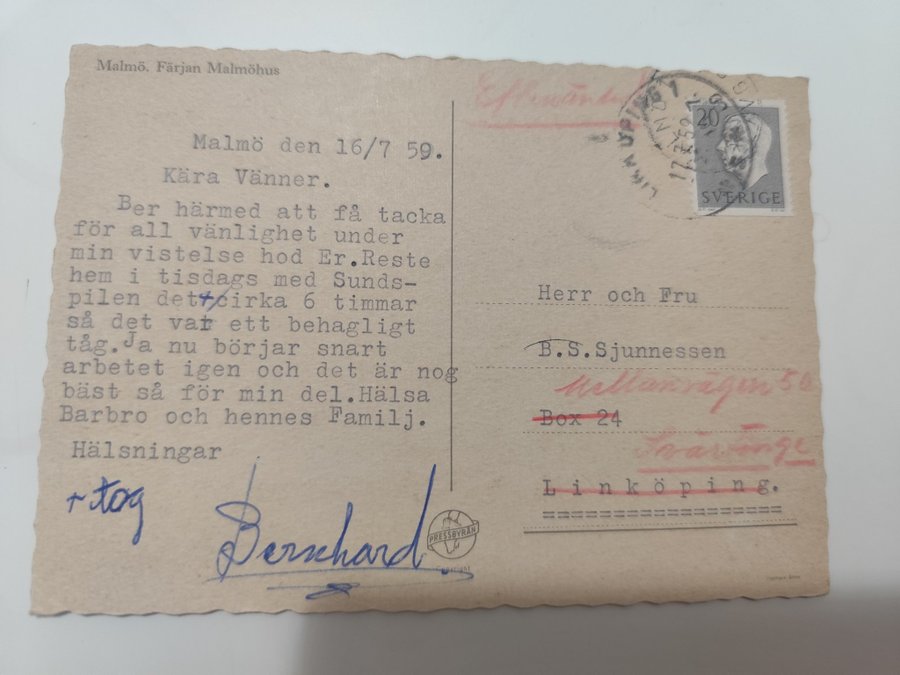 Malmö. Färjan Malmöhus
Malmö den 16/7 59.
Kära Vänner.
Ber härmed att få tacka
för all vänlighet under
min vistelse hod Er.Reste
hem i tisdags med Sunds-
pilen det + cirka 6 timmar
så det var ett behagligt
tåg.Ja nu börjar snart
arbetet igen och det är nog
bäst så för min del.Hälsa
Barbro och hennes Familj.
Hälsningar
+ tog
Bernhard
PRESSBYRÅN
Copyright
Eftersändes
LINKÖPING 1
17.7.59
20
SVERIGE
Herr och Fru
B.S.Sjunnessen
Mellanvägen 5
Box 24
Svärtinge
Linköping.